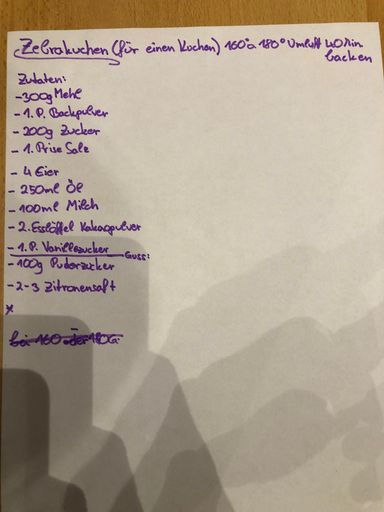 Zebrakuchen (für einen Kuchen) 160°o 180° Umluft 40 Min
backen
Zutaten:
- 300g Mehl
- 1. P. Backpulver
- 200g Zucker
- 1. Prise Salz
- 4 Eier
- 250ml Öl
- 100ml Milch
- 2. Esslöffel Kakaopulver
- 1. P. Vanillezucker
Guss:
- 100g Puderzucker
- 2-3 Zitronensaft
x
bei 160 oder 180G.